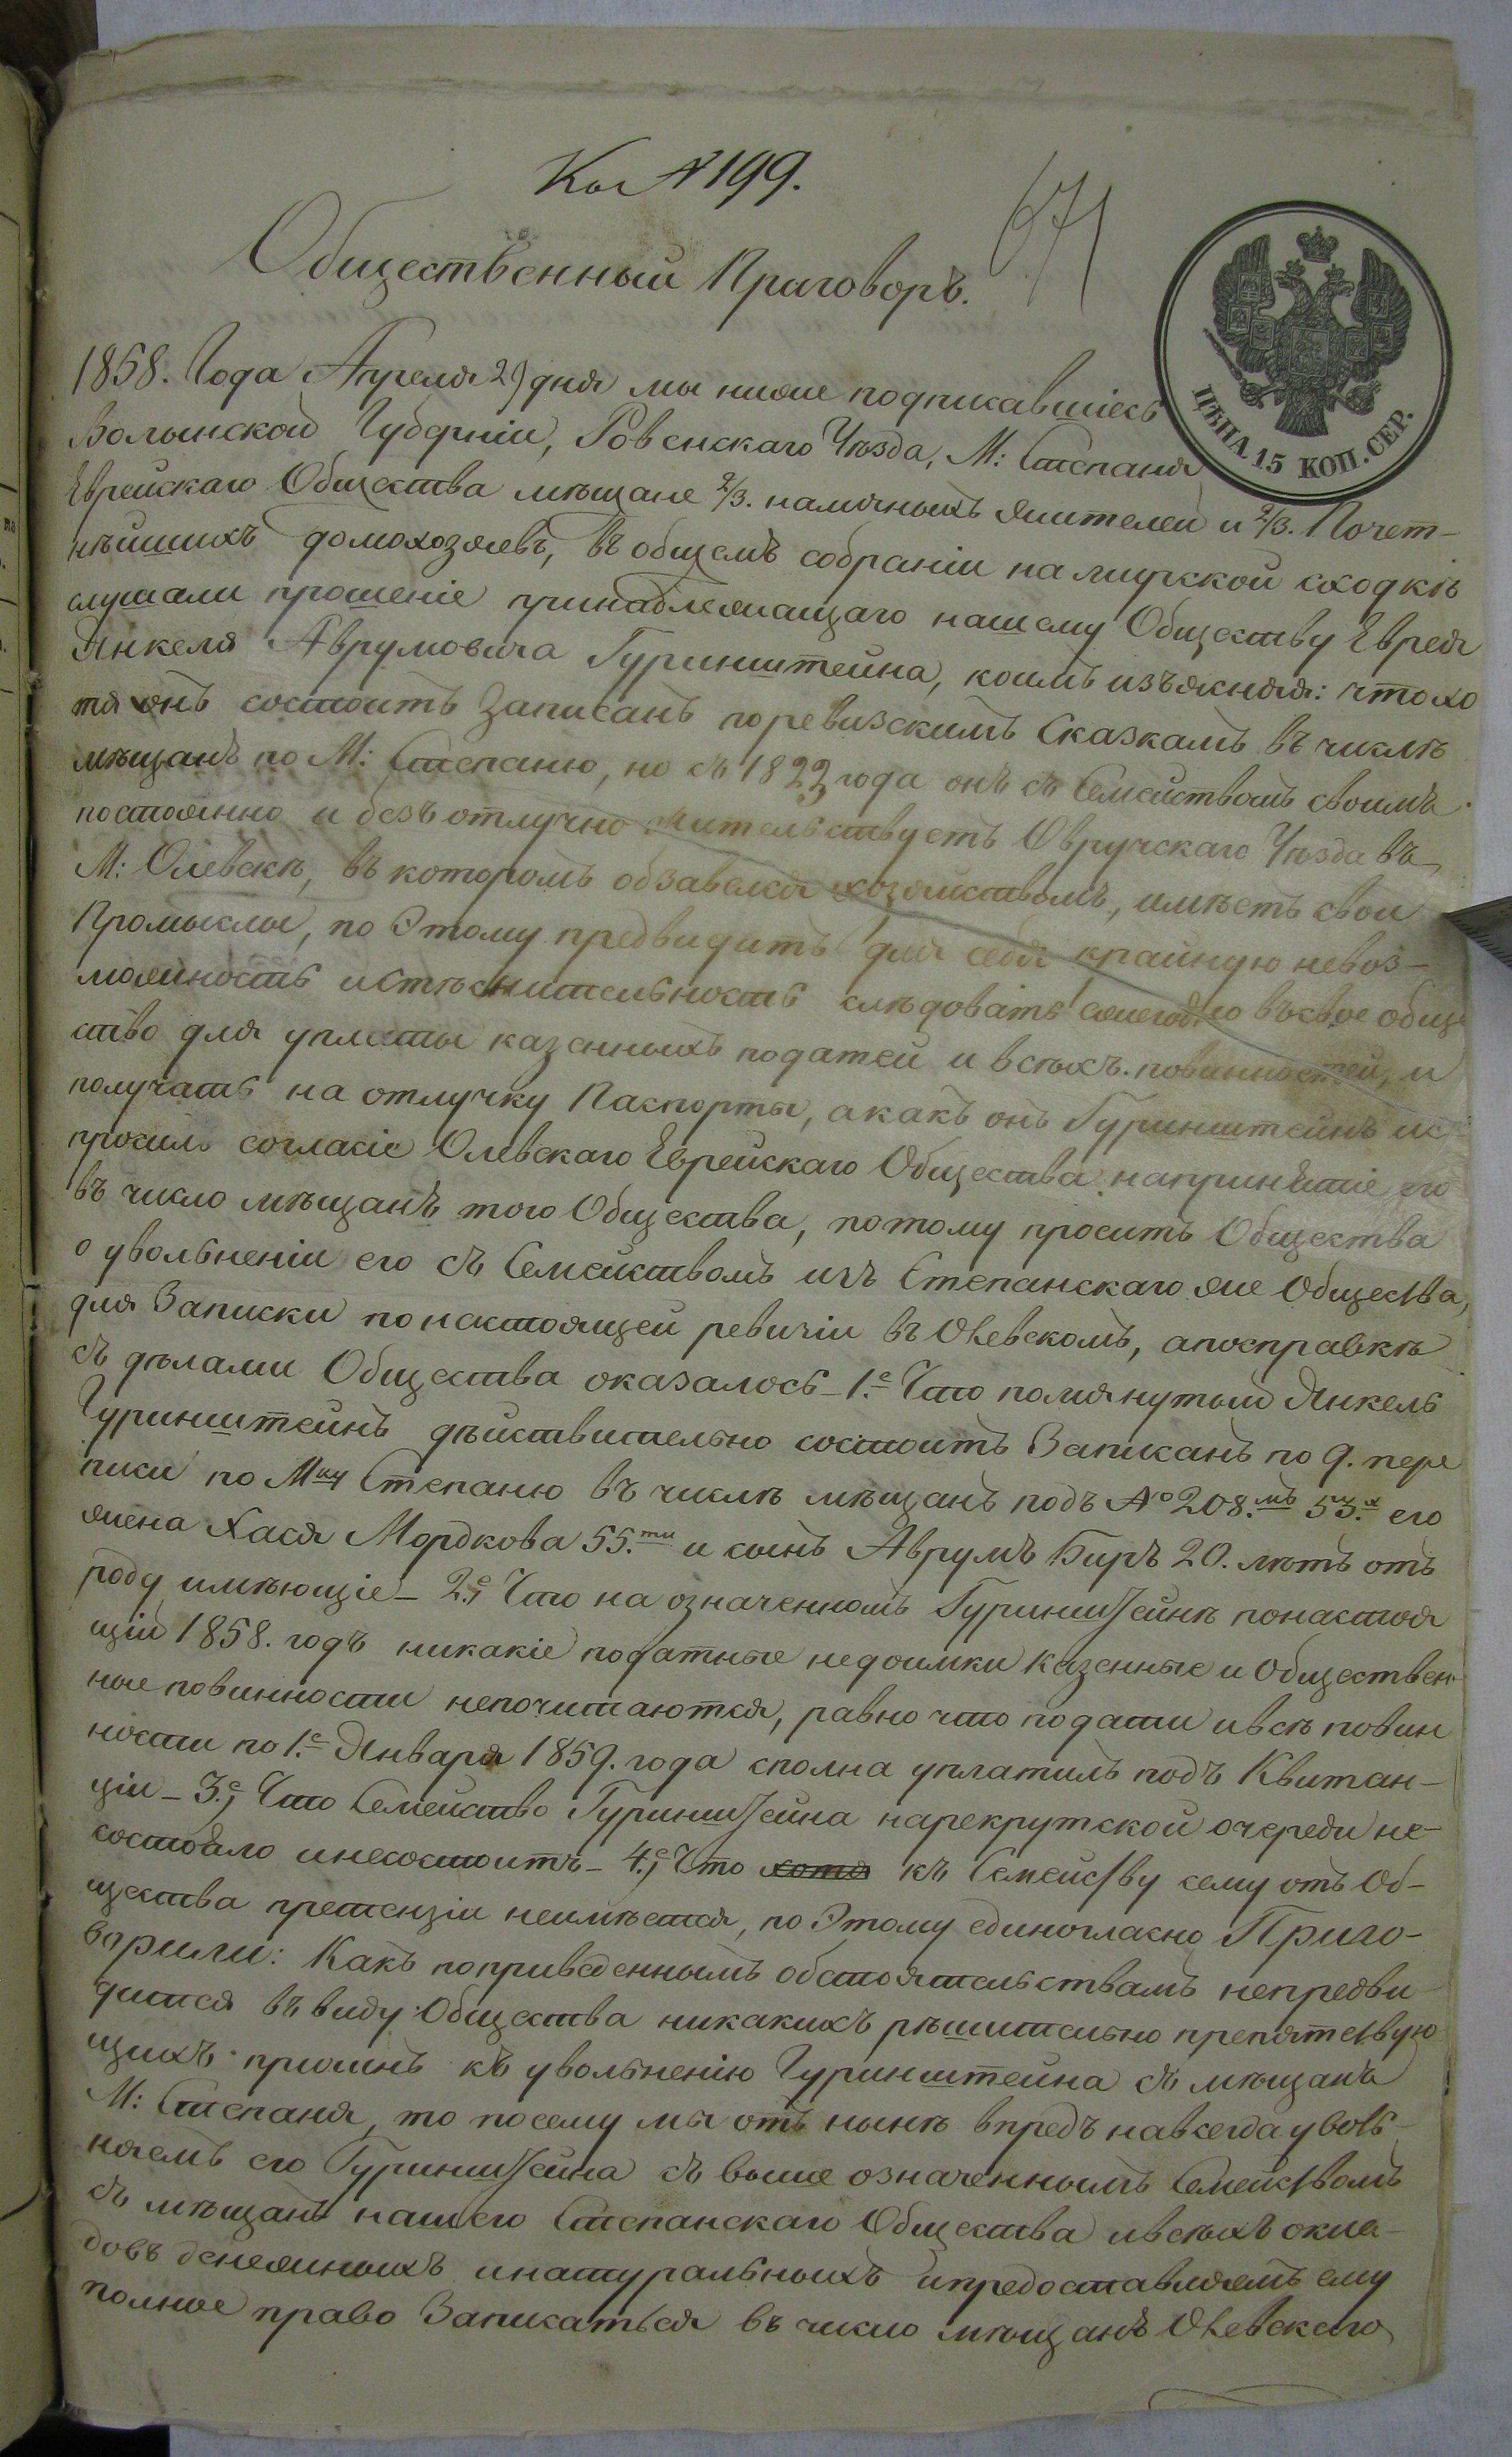 Ко № 199.
671
Общественный Приговоръ.
ЦѢНА 15 КОП. СЕР.
1858. Года Апреля 29 дня мы ниже подписавшіесь
Волынской Губерніи, Ровенскаго Уѣзда, М: Степаня
Еврейскаго Общества мѣщане 2/3. наличныхъ жителей и 2/3. Почет-
нѣйшихъ домохозяевъ, въ общемъ собраніи на мирской сходкѣ
слушали прошеніе принадлежащаго нашему Обществу Еврея
Янкеля Аврумовича Гуринштейна, коимъ изъясняя: что хо
тя онъ состоитъ Записанъ по ревизскимъ Сказкамъ въ числѣ
мѣщанъ по М: Степаню, но съ 1822 года онъ съ Семействомъ своимъ
постоянно и безъ отлучно жительствуетъ Овручскаго Уѣзда въ
М: Олевскѣ, въ которомъ обзавелся хозяйствомъ, имѣетъ свои
Промыслы, по Этому предвидитъ для себя крайную невоз-
можность и стѣснительность слѣдовать ежегодно въ свое обще
ство для уплаты казенныхъ податей и всѣхъ повинностей, и
получать на отлучку Паспорты, а какъ онъ Гуринштейнъ ис-
просилъ согласіе Олевскаго Еврейскаго Общества на принятіе его
въ число мѣщанъ того Общества, потому проситъ Общества
о увольненіи его съ Семействомъ изъ Степанскаго же Общества,
для Записки по настоящей ревизіи въ Олевскомъ, а по справкѣ
съ дѣлами Общества оказалось - 1.е Что помянутый Янкель
Гуринштейнъ дѣйствительно состоитъ Записанъ по 9. пере
писи по Мку Степаню въ числѣ мѣщанъ подъ № 208.мъ 53.х его
жена Хася Мордкова 55.ти и сынъ Аврумъ Беръ 20. лѣтъ отъ
роду имѣющіе - 2.е, Что на означенномъ Гуринштейнѣ по настоя
щій 1858. годъ никакіе податные недоимки Казенные и Обществен-
ные повинности непочитаются, равно что подати и всѣ повин
ности по 1.е Января 1859. года сполна уплатилъ подъ Квитан-
ціи - 3.е, Что Семейство Гуринштейна на рекрутской очереди не-
состояло и несостоитъ - 4.е, Что хотя къ Семейству сему отъ Об-
щества претензіи неимѣется, по Этому единогласно Приго-
ворили: Какъ по приведеннымъ обстоятельствамъ непредви-
дится въ виду Общества никакихъ рѣшительно препятствую
щихъ причинъ къ увольненію Гуринштейна съ мѣщанъ
М: Степаня, то по сему мы отъ нынѣ впредъ навсегда уволь-
няемъ его Гуринштейна съ выше означеннымъ Семействомъ
съ мѣщанъ нашего Степанскаго Общества и всѣхъ окла-
довъ денежныхъ и натуральныхъ и предоставляемъ ему
полное право Записаться въ число мѣщанъ Олевскаго